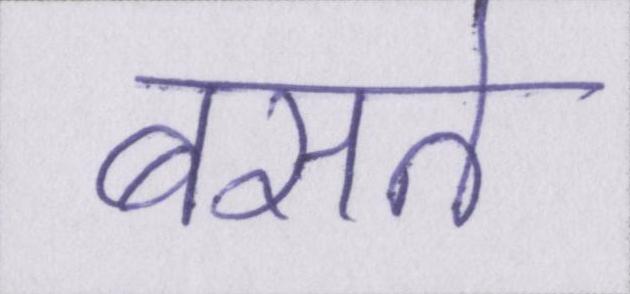 बसते